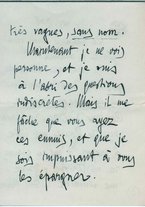 très vagues, sans nom.
Maintenant je ne vois
personne, et je suis
à l'abri des questions
indiscrètes. Mais il me
fâche que vous ayez
ces ennuis, et que je
sois impuissant à vous
les épargner.